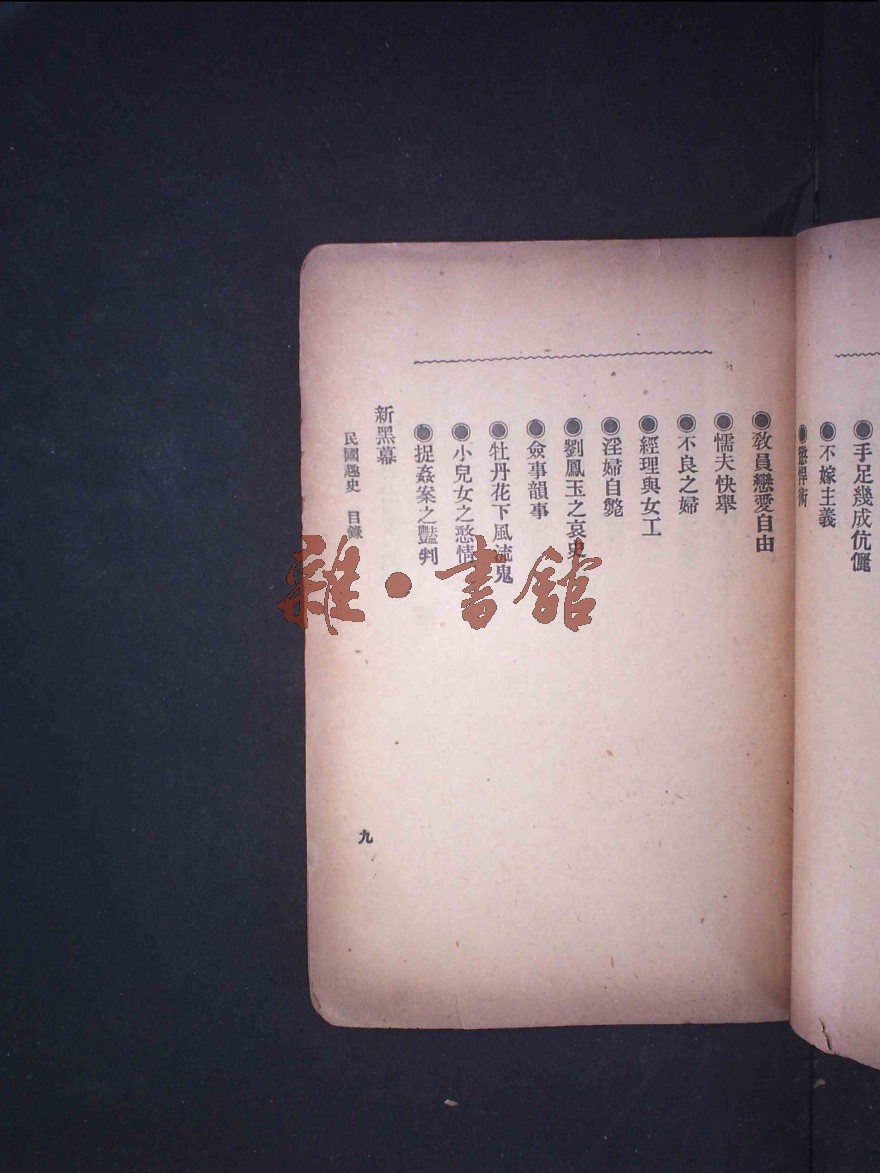 ◉手足幾成伉儷
◉不嫁主義
◉懲悍術
◉教員戀愛自由
◉懦夫快舉
◉不良之婦
◉經理與女工
◉淫婦自斃
◉劉鳳玉之哀史
◉僉事韻事
◉牡丹花下風流鬼
◉小兒女之憨情
◉捉姦案之豔判
新黑幕
民國趣史 目錄
九
雜·書館